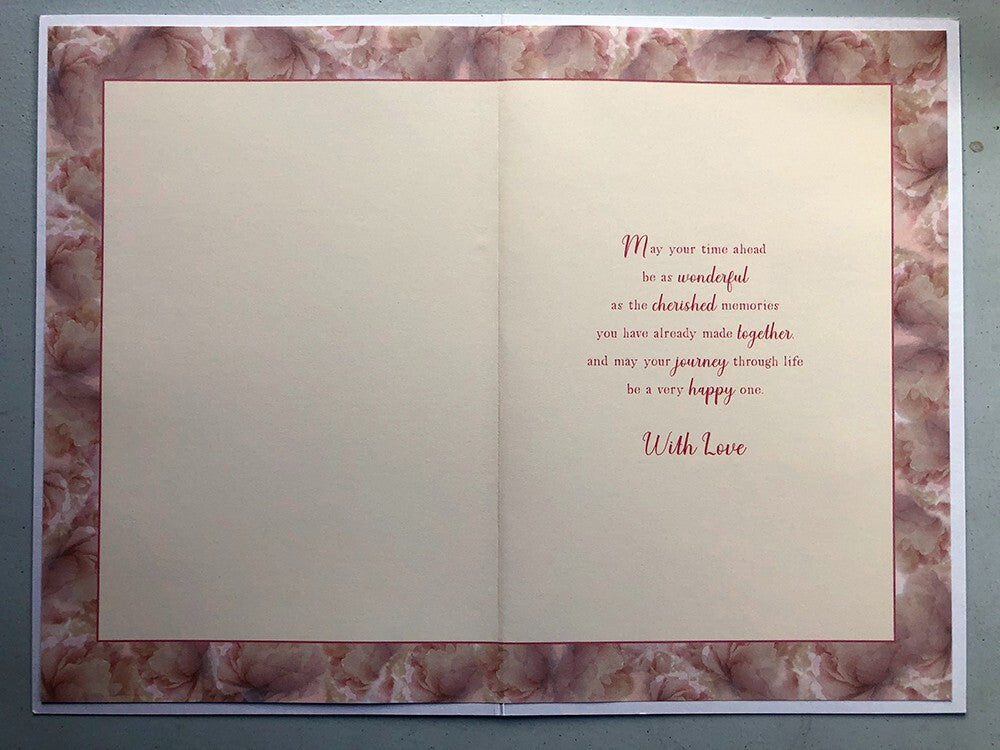 May your time ahead
be as wonderful
as the cherished memories
you have already made together,
and may your journey through life
be a very happy one.
With Love